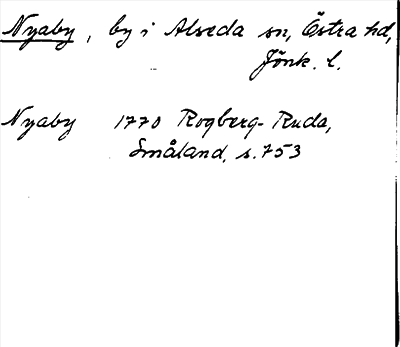 Nyaby, by i Alseda sn, Östra hd,
Jönk. l.
Nyaby 1770 Rogberg-Ruda,
Småland, s. 753